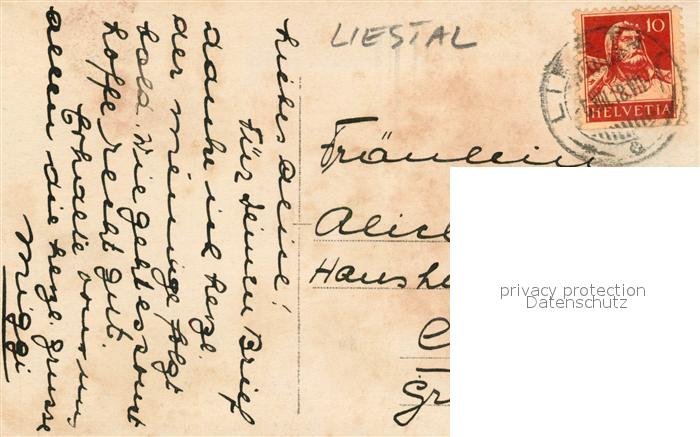 LIESTAL
10
HELVETIA
Liebes Aline!
Für Deinen Brief
danke ich herzl.
der meinige folgt
bald. Wie geht es sonst
hoffe recht gut.
Erhalte von uns
allen die herzl. Grüsse
Miggi
Fräulein
Alice
Haush
privacy protection
Datenschutz